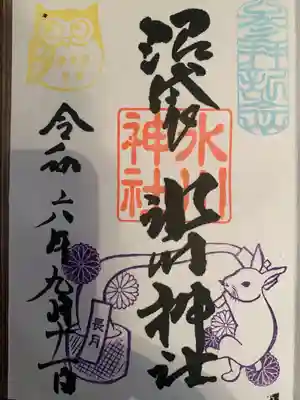 沼袋 氷川神社
氷川
神社
令和六年九月十一日
長月